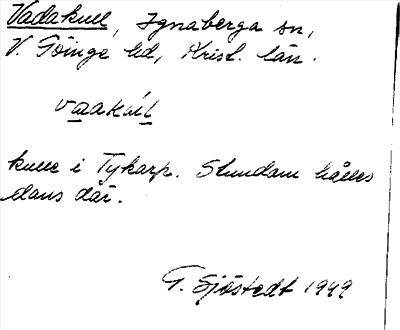 Vadakull, Ignaberga sn,
V. Göinge hd, Krist. län.
kulle i Tykarp. Stundom hålles
dans där.
G. Sjöstedt 1949